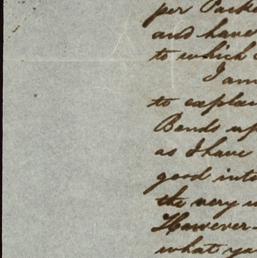 per Packe
and have
to which
I am
to explai
Bends up
as I have
good into
the very
However
what